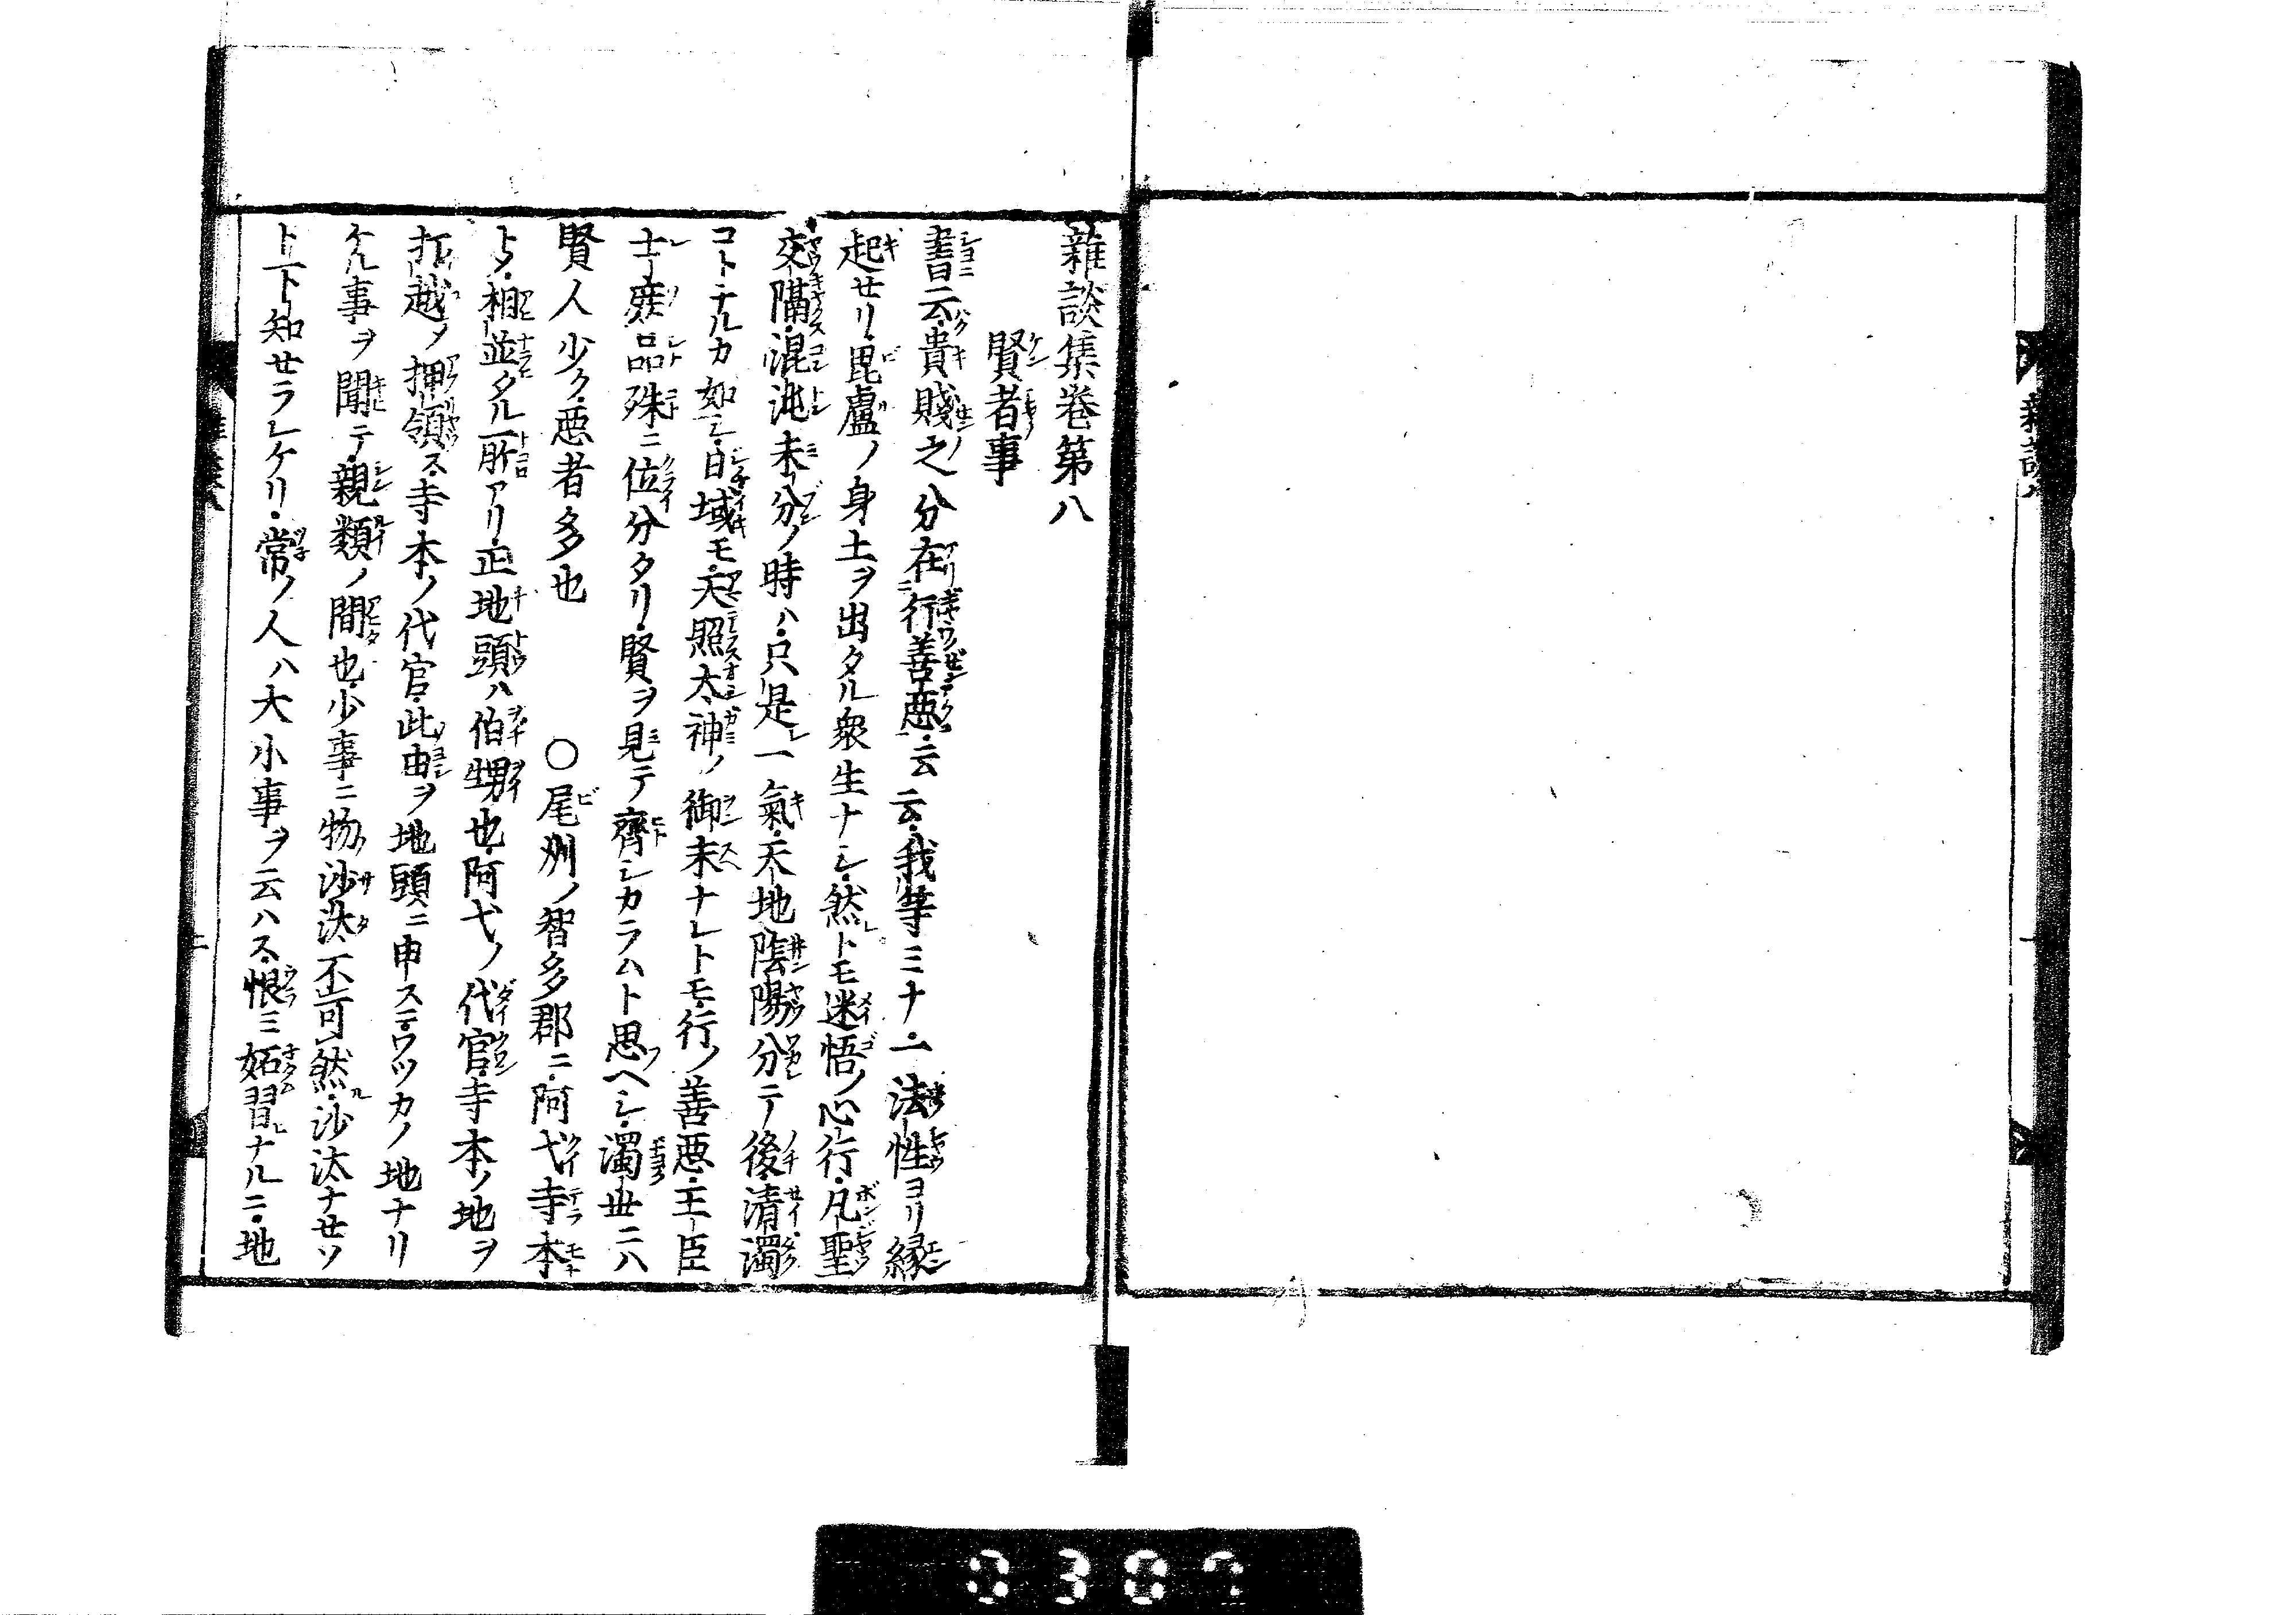 雜談集巻第八
賢者事
書云貴賤之分在行善惡云云我等ミナ一法性ヨリ縁
起セリ毘盧ノ身土ヲ出タル衆生ナシ然トモ迷悟ノ心行凡聖
交隔混沌未分ノ時ハ只是一氣天地陰陽分テ後清濁
コトナルカ如シ日域モ天照太神ノ御末ナレトモ行ノ善惡王臣
士庶品殊ニ位分タリ賢ヲ見テ齊シカラムト思ヘシ濁世ニハ
賢人少ク惡者多也 〇尾州ノ智多郡ニ阿弋寺本
トメ相並タル所アリ正地頭ハ伯甥也阿弋ノ代官寺本ノ地ヲ
打越ノ押領ス寺本ノ代官此由ヲ地頭ニ申ステワツカノ地ナリ
ケル事ヲ聞テ親類ノ間也少事ニ物沙汰不可然沙汰ナセソ
ト下知セラレケリ常ノ人ハ大小事ヲ云ハス恨ミ妬習ナルニ地